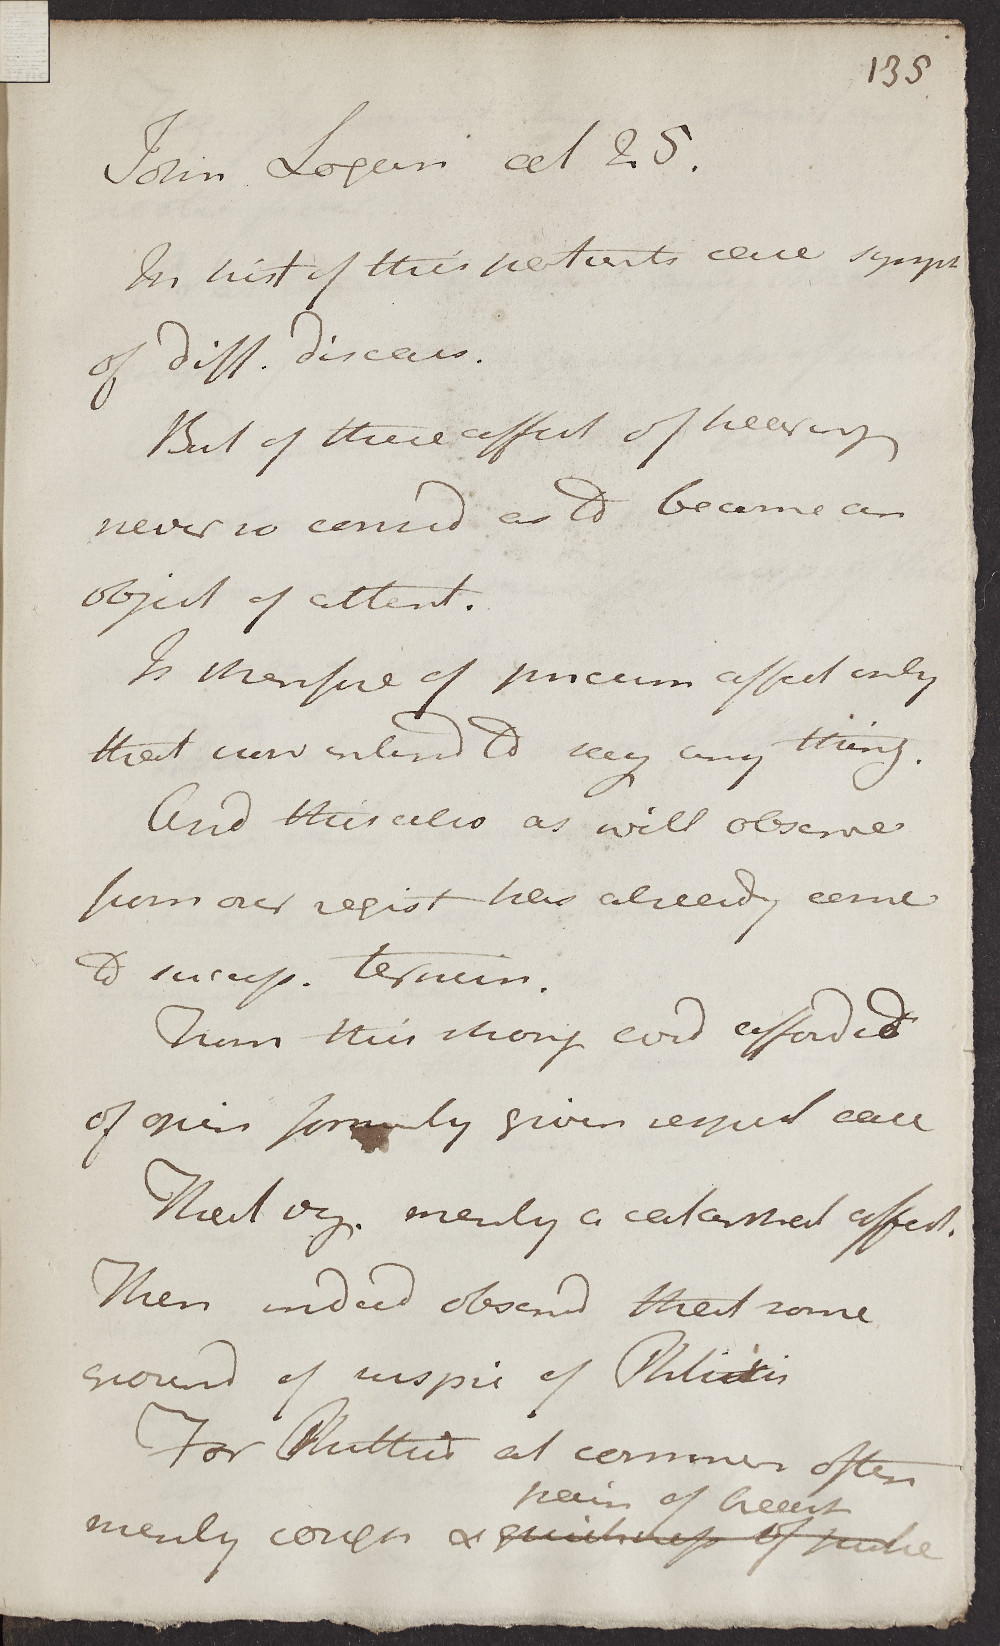 135
John Logan aet 25.
In hist of this patients case sympt
of diff. diseases.
But of these affect of hearing
never so consid as to become an
object of attent.
Is therefore of pneum affect only
that now intend to say any thing.
And this also as will observe
from our regist has already come
to success. termin.
From this strong evid afforded
of opin formerly given respect case
That viz. merely a catarrhal affect.
Then indeed observd that some
ground of suspic of Phthisis
For Phthisis at commen often
pain of breast
merely cough & quickness of pulse